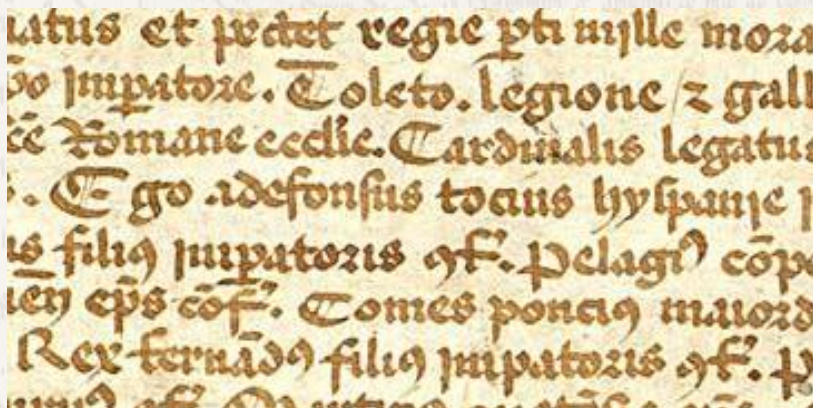 uatus et pectet regie p̄ti mille mora
Imp̄atore. Toleto. legione ⁊ gall
Romane eccl̄ie. Cardinalis legatus
. Ego adefonsus tocius hyspanie
is filiꝰ imp̄atoris ꝯf̄. Pelagiꝰ cōpo
ep̄s cōf̄. Comes ponciꝰ maiord
Rex fernādꝰ filiꝰ imp̄atoris ꝯf̄. P